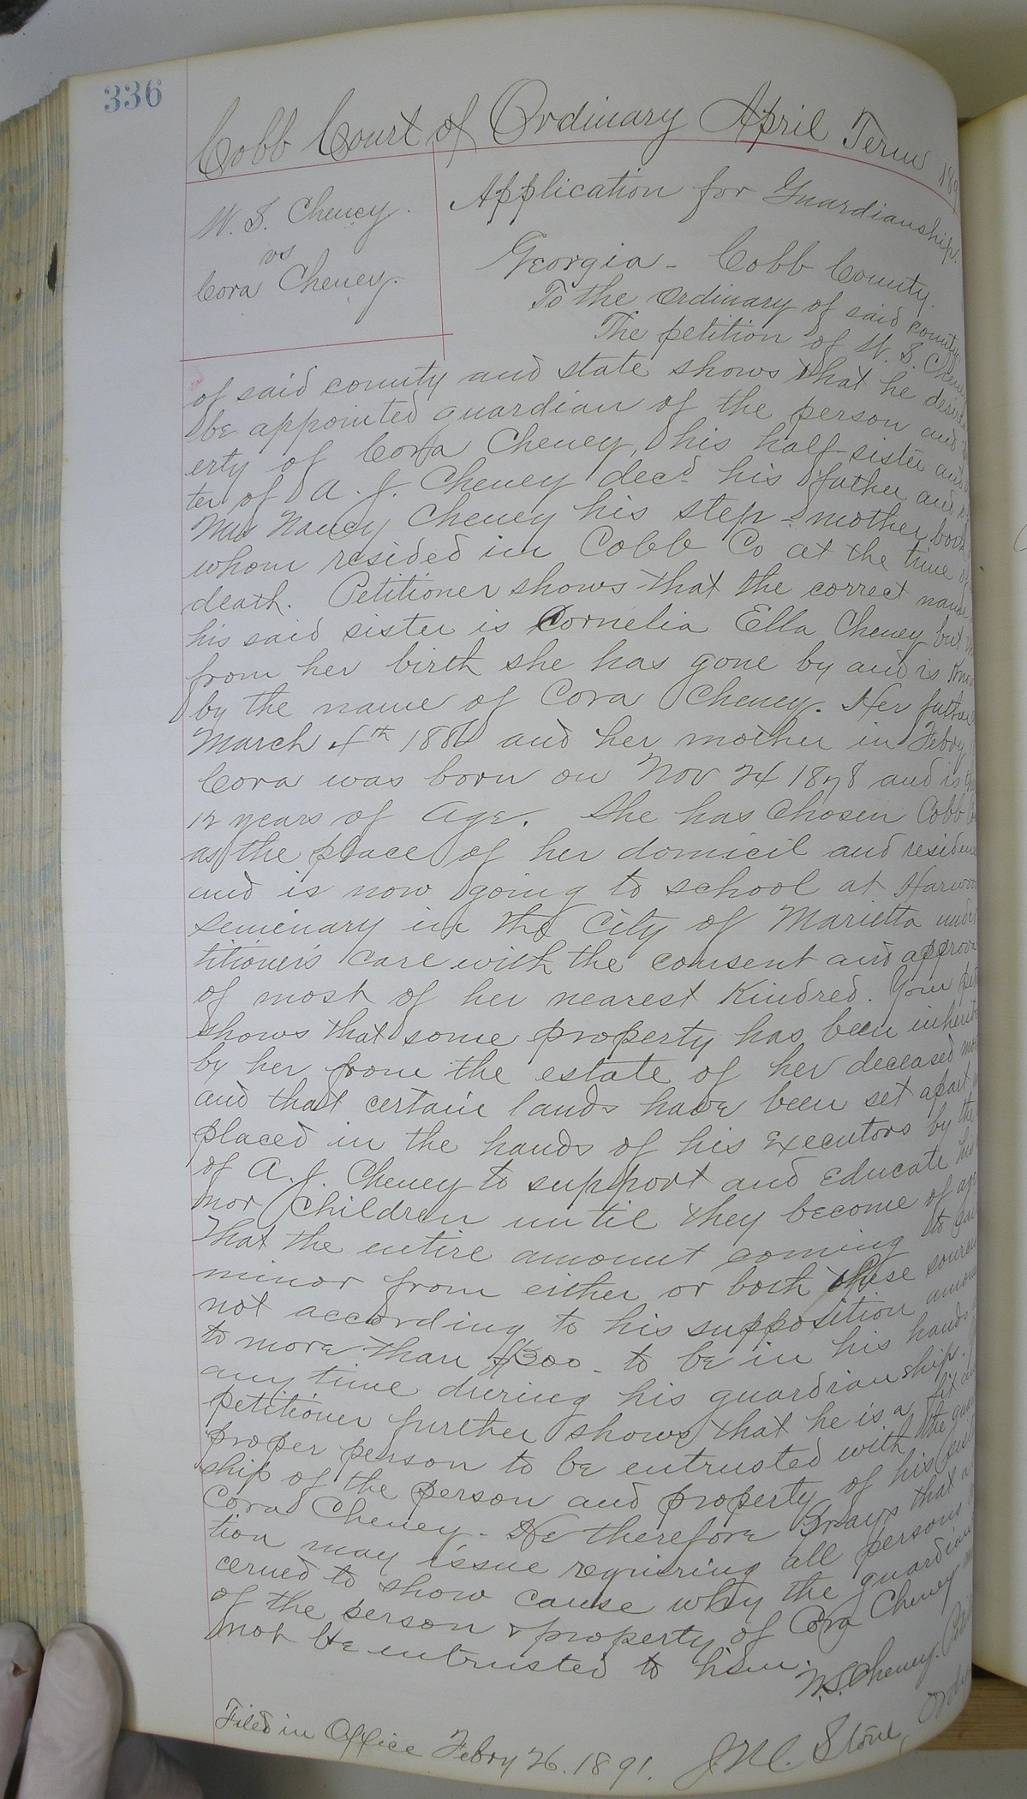 336
Cobb Court of Ordinary April Term 189
W. S. Cheney.
vs
Cora Cheney.
Application for Guardianship.
Georgia - Cobb County.
To the Ordinary of said county
The petition of W. S. Chene
of said county and state shows that he desir
be appointed guardian of the person and
erty of Cora Cheney, his half-sister and
ter of A. J. Cheney decd his father and
Mrs Nancy Cheney his step-mother, both
whom resided in Cobb Co at the time of
death. Petitioner shows that the correct name
his said sister is Cornelia Ella Cheney but
from her birth she has gone by and is know
by the name of Cora Cheney. Her father
March 4th and her mother in Febry
Cora was born on Nov 24 1878 and is
12 years of age. She has chosen Cobb Co
as the place of her domicil and residence
and is now going to school at Harwood
Seminary in the City of Marietta under
titioner's care with the consent and approva
of most of her nearest Kindred. Your pet
shows that some property has been inherite
by her from the estate of her deceased mo
and that certain lands have been set apart
placed in the hands of his Executors by the
of A. J. Cheney to support and educate his
nor Children until they become of age
That the entire amount coming to sai
minor from either or both these sources
not according to his supposition amou
to more than $300 - to be in his hands
any time during his guardianship.
petitioner further shows that he is a fit an
proper person to be entrusted with the gua
ship of the person and property of his sis
Cora Cheney - He therefore Prays that a
tion may issue requiring all persons
cerned to show cause why the guardian
of the person & property of Cora Cheney
not be entrusted to him.
W. S. Cheney.
Filed in Office Febry 26. 1891.
J. M. Stone,